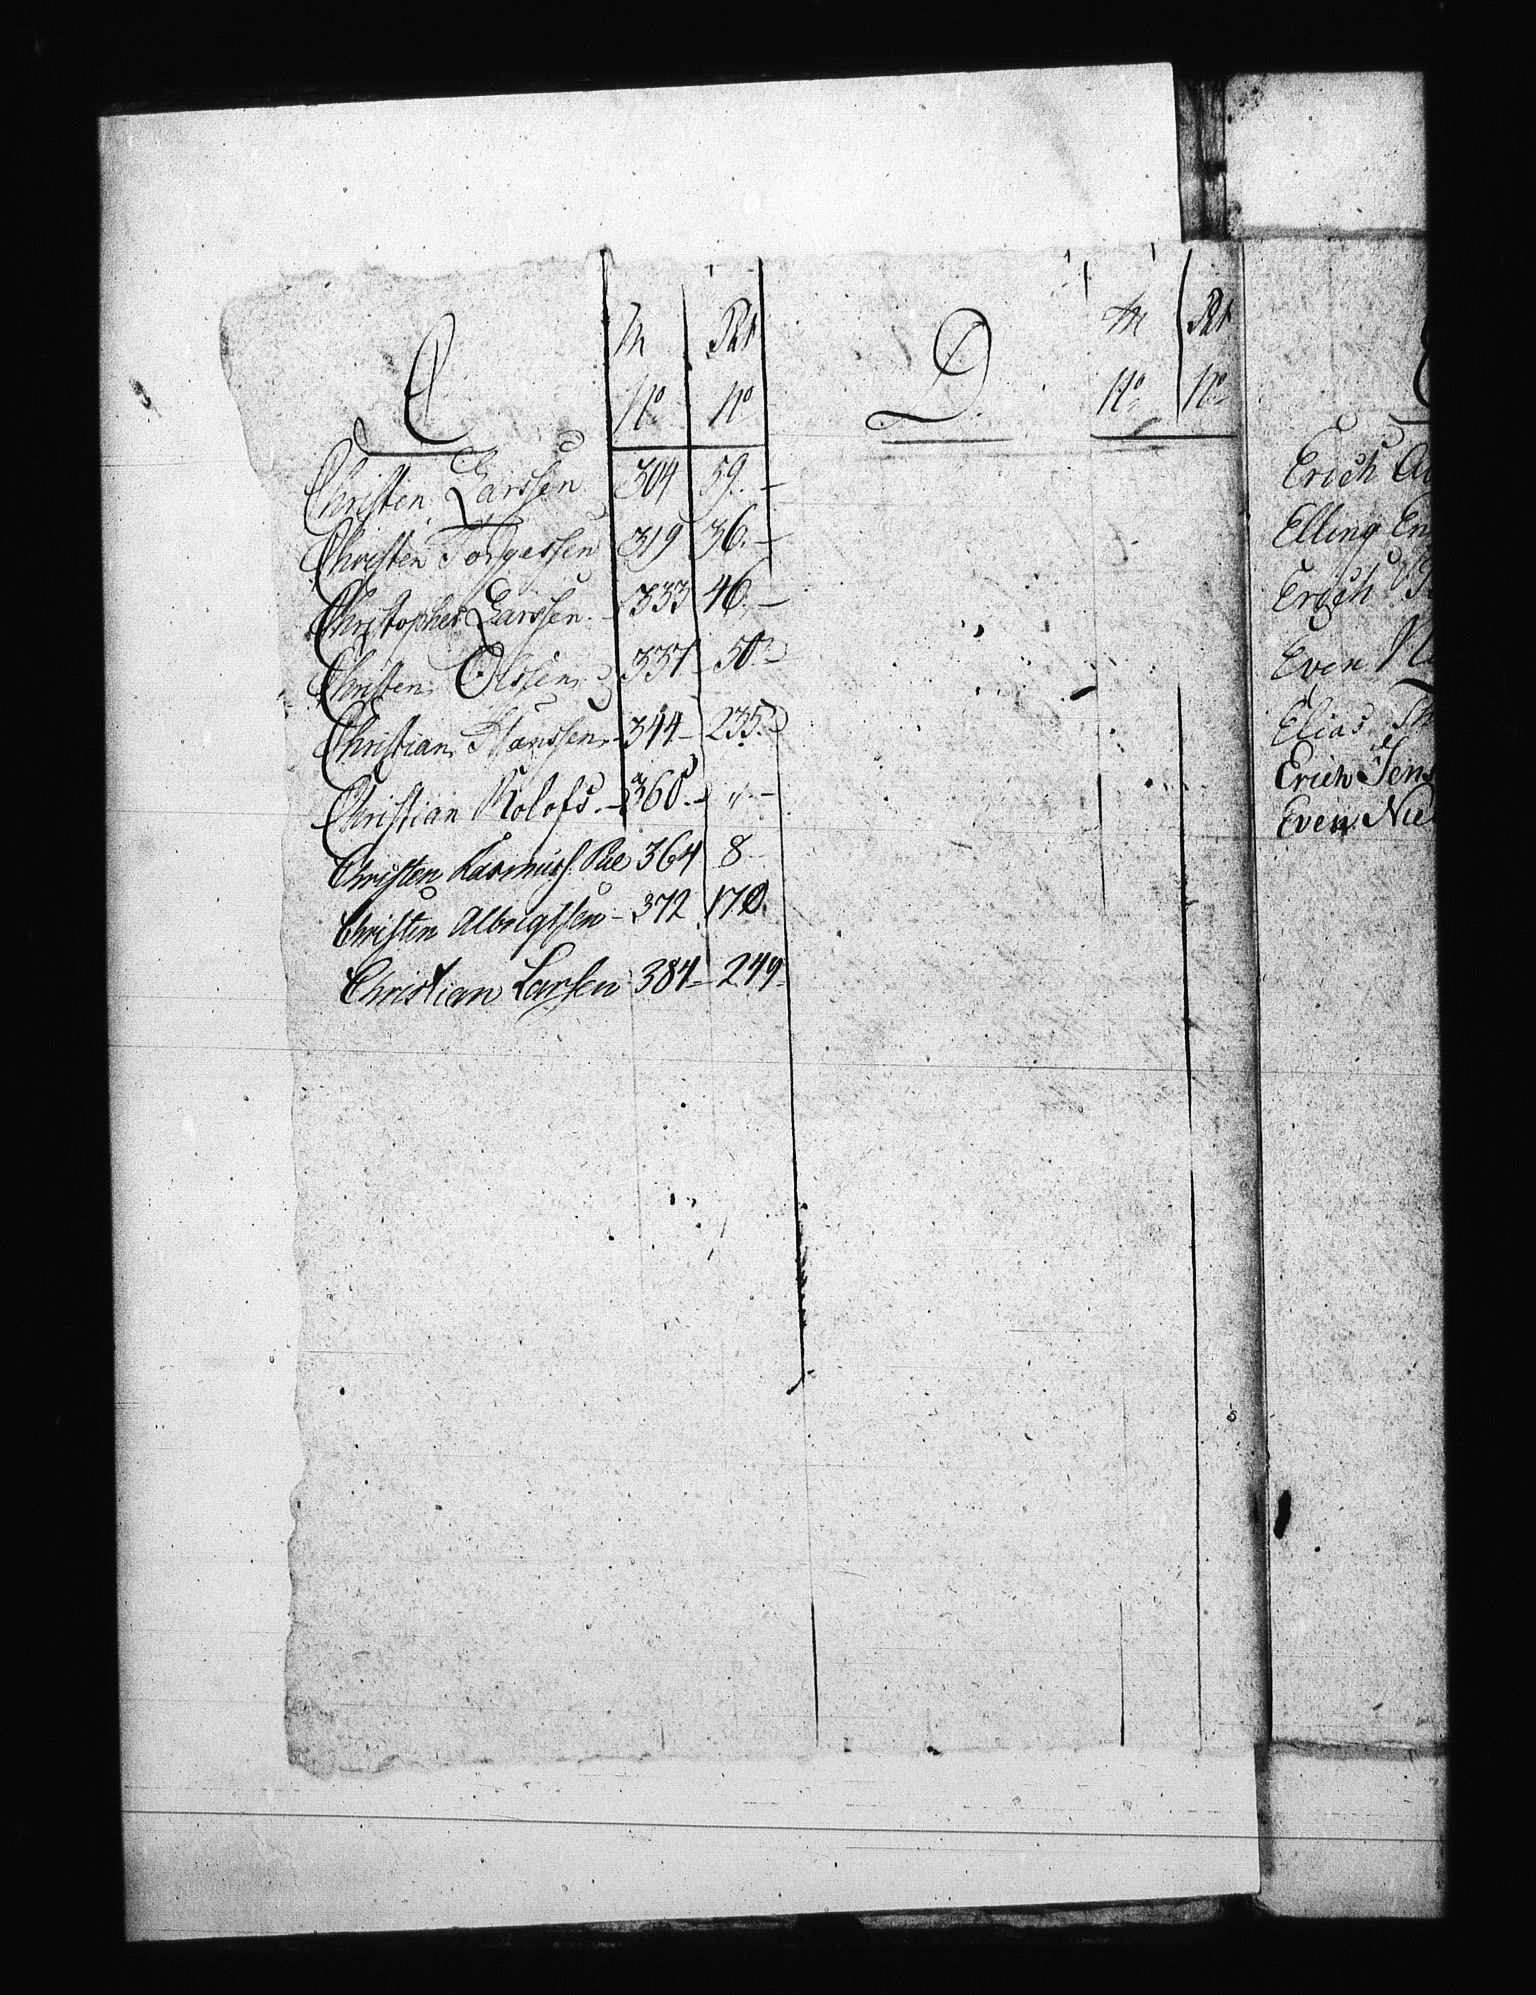 C
M Rul
No No
Christen Larssen 304 59.
Christen Torgerssen 319 36.
Christopher Larssen 333 46.
Christen Olssen 337 50
Christian Hanssen 344 235.
Christian Rolofs. 360. "
Christen Rasmuss. Pae 364 8
Christen Albregtsen 372 170.
Christian Larsen 384 249
D.
M Rul
No No
Erich
Elling
Erich
Even
Elias
Erich Jens
Even Nie